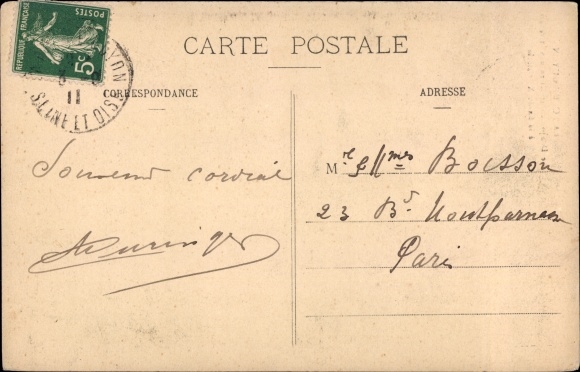 POSTES
RÉPUBLIQUE FRANÇAISE
5c
YON
11
SEINE ET OISE
CARTE POSTALE
CORRESPONDANCE
ADRESSE
Souvenir cordial
Mr & Mmes Boisson
23 Bd Montparnasse
Paris